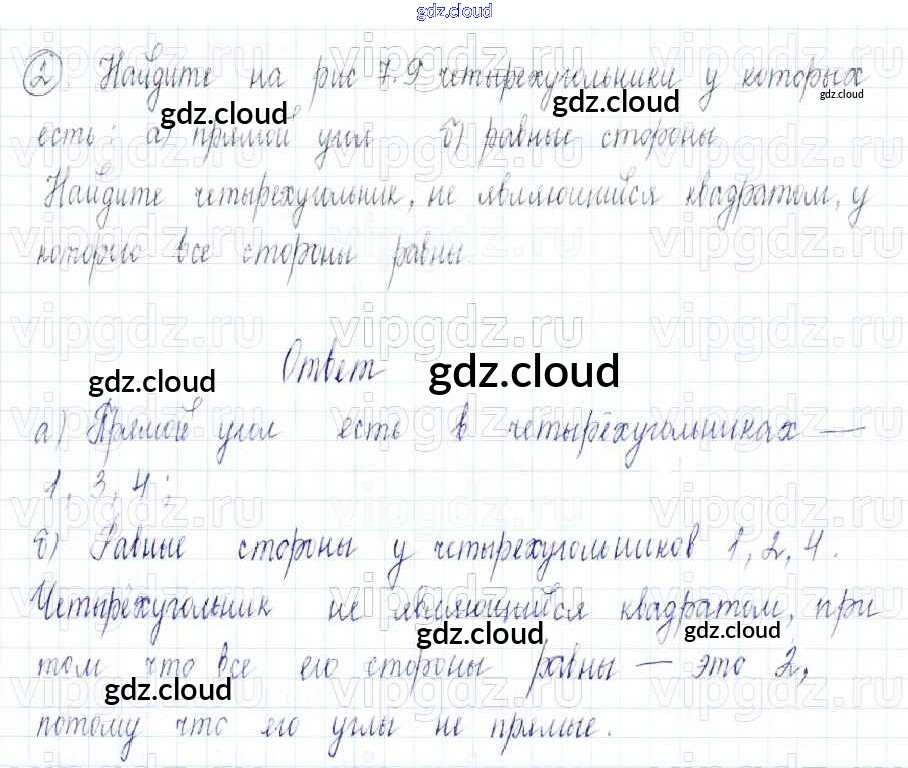 gdz.cloud
2 Найдите на рис 7.9 четырехугольники у которых
есть: а) прямой угол б) равные стороны
Найдите четырехугольник, не являющийся квадратом, у
которого все стороны равны.
Ответ
а) Прямой угол есть в четырёхугольниках —
1, 3, 4;
б) Равные стороны у четырехугольников 1, 2, 4.
Четырёхугольник не являющийся квадратом, при
том что все его стороны равны — это 2,
потому что его углы не прямые.